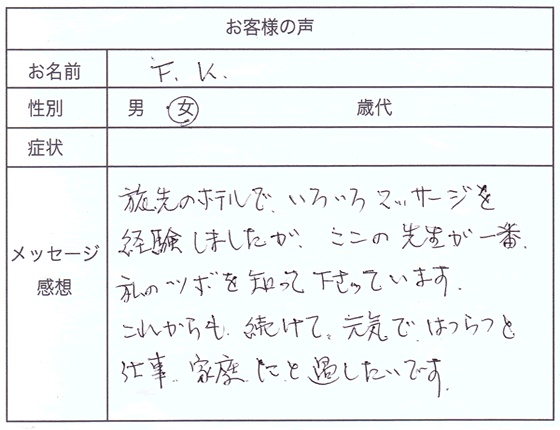 お客様の声
お名前 F. K.
性別 男 女 歳代
症状
メッセージ
感想
旅先のホテルで、いろいろマッサージを
経験しましたが、ここの先生が一番、
私のツボを知って下さっています。
これからも、続けて、元気で、はつらつと
仕事、家庭、にと過したいです。